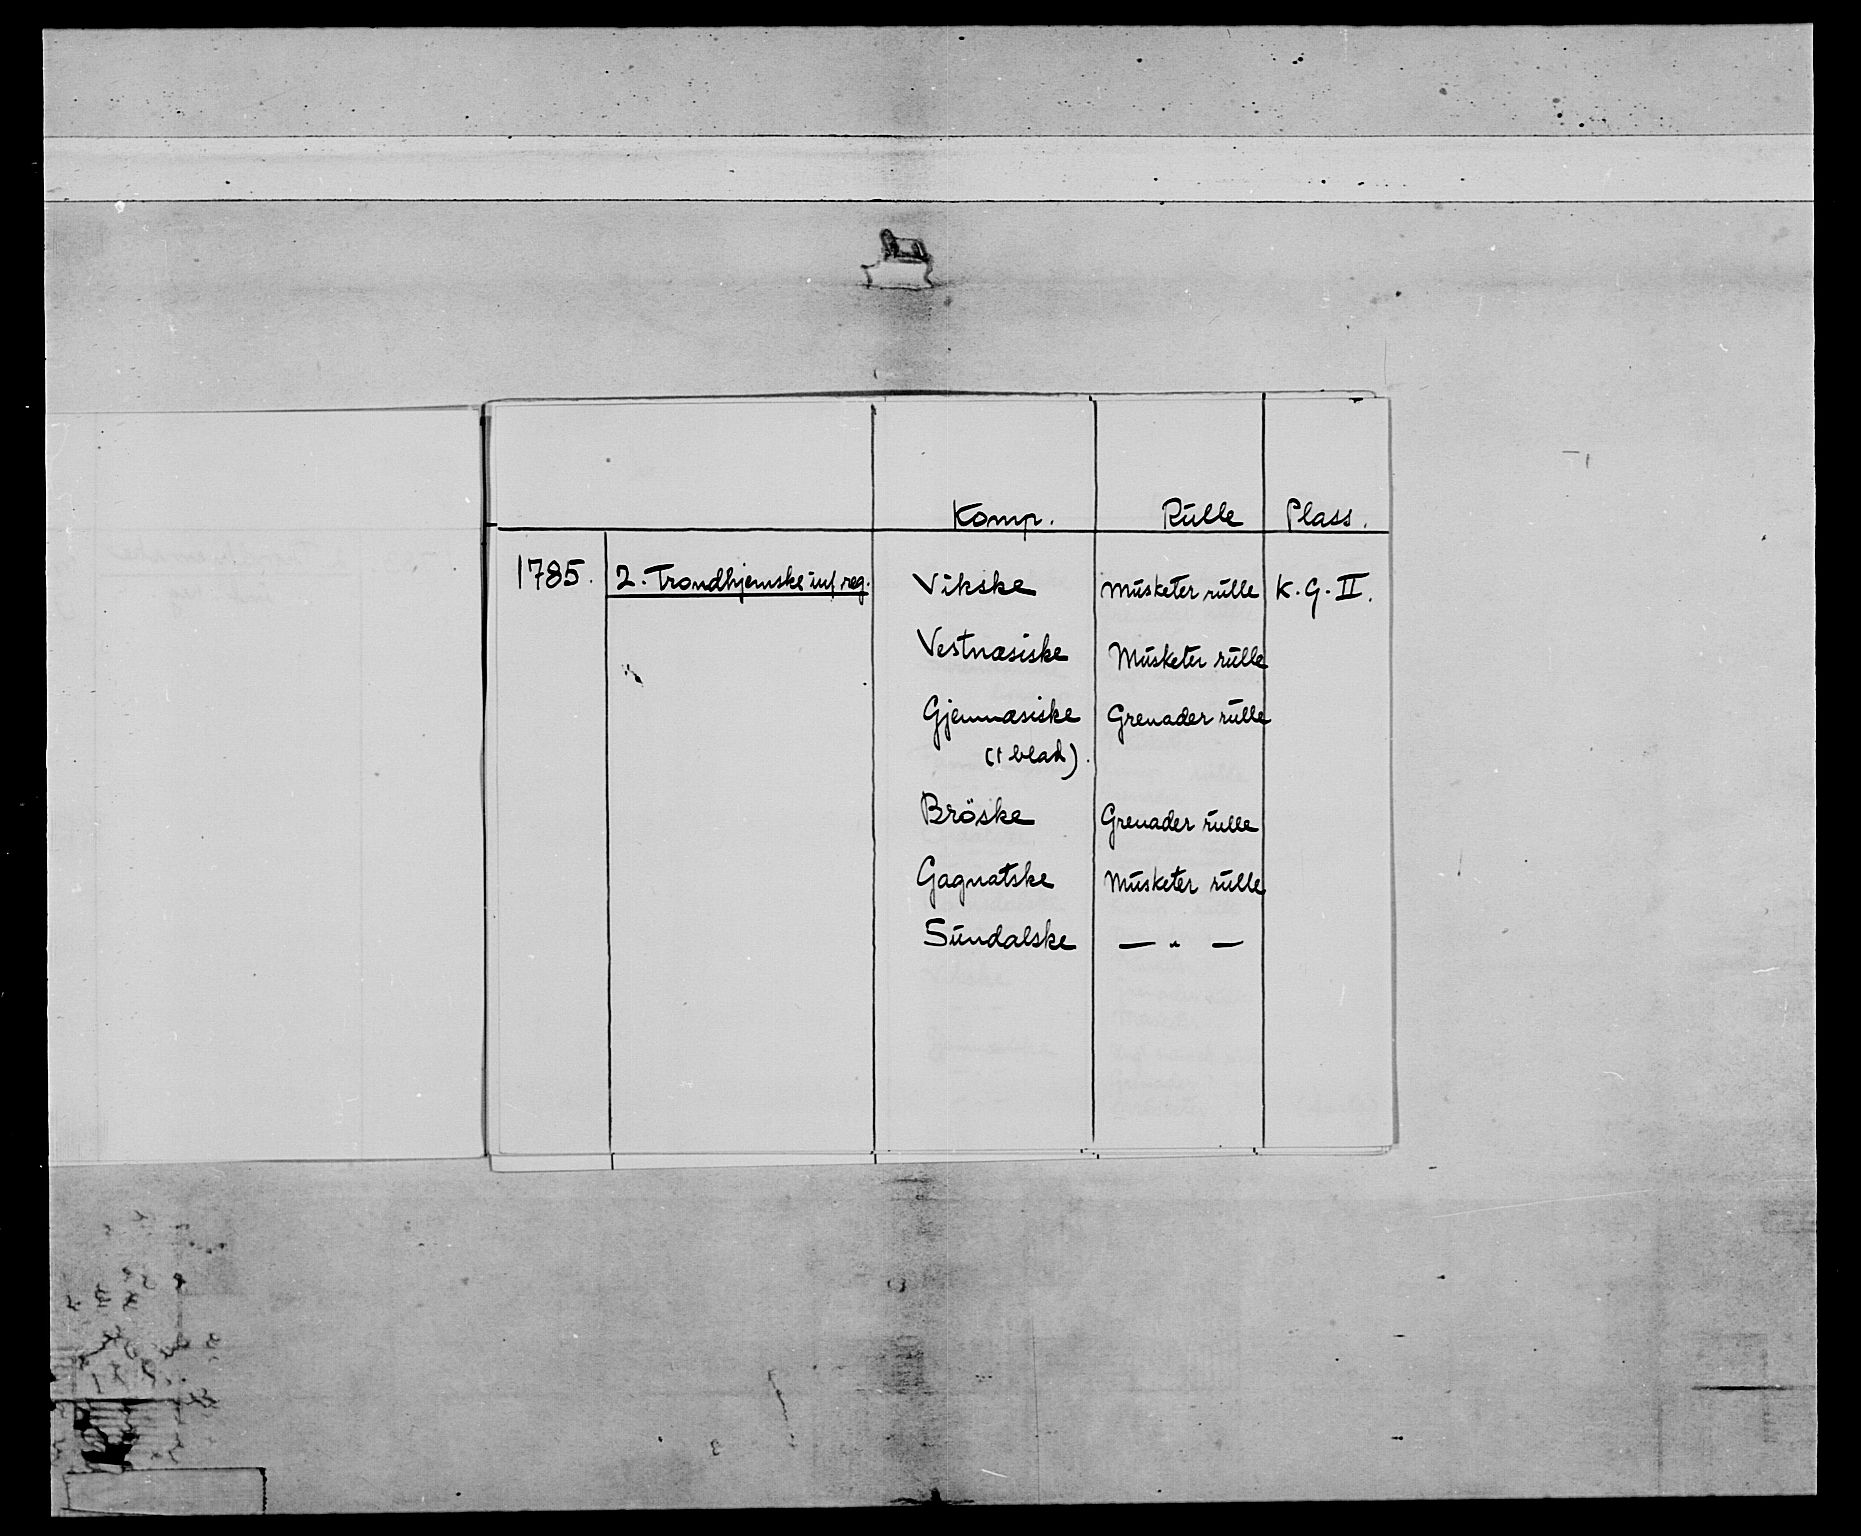 Komp. Rulle Plass.
1785. 2. Trondhjemske inf. reg. Vikske Musketer rulle K.G.II.
Vestnæsiske Musketer rulle
Gjemnæsiske Grenader rulle
(1 blad).
Bröske Grenader rulle
Gagnatske Musketer rulle
Sundalske — " —